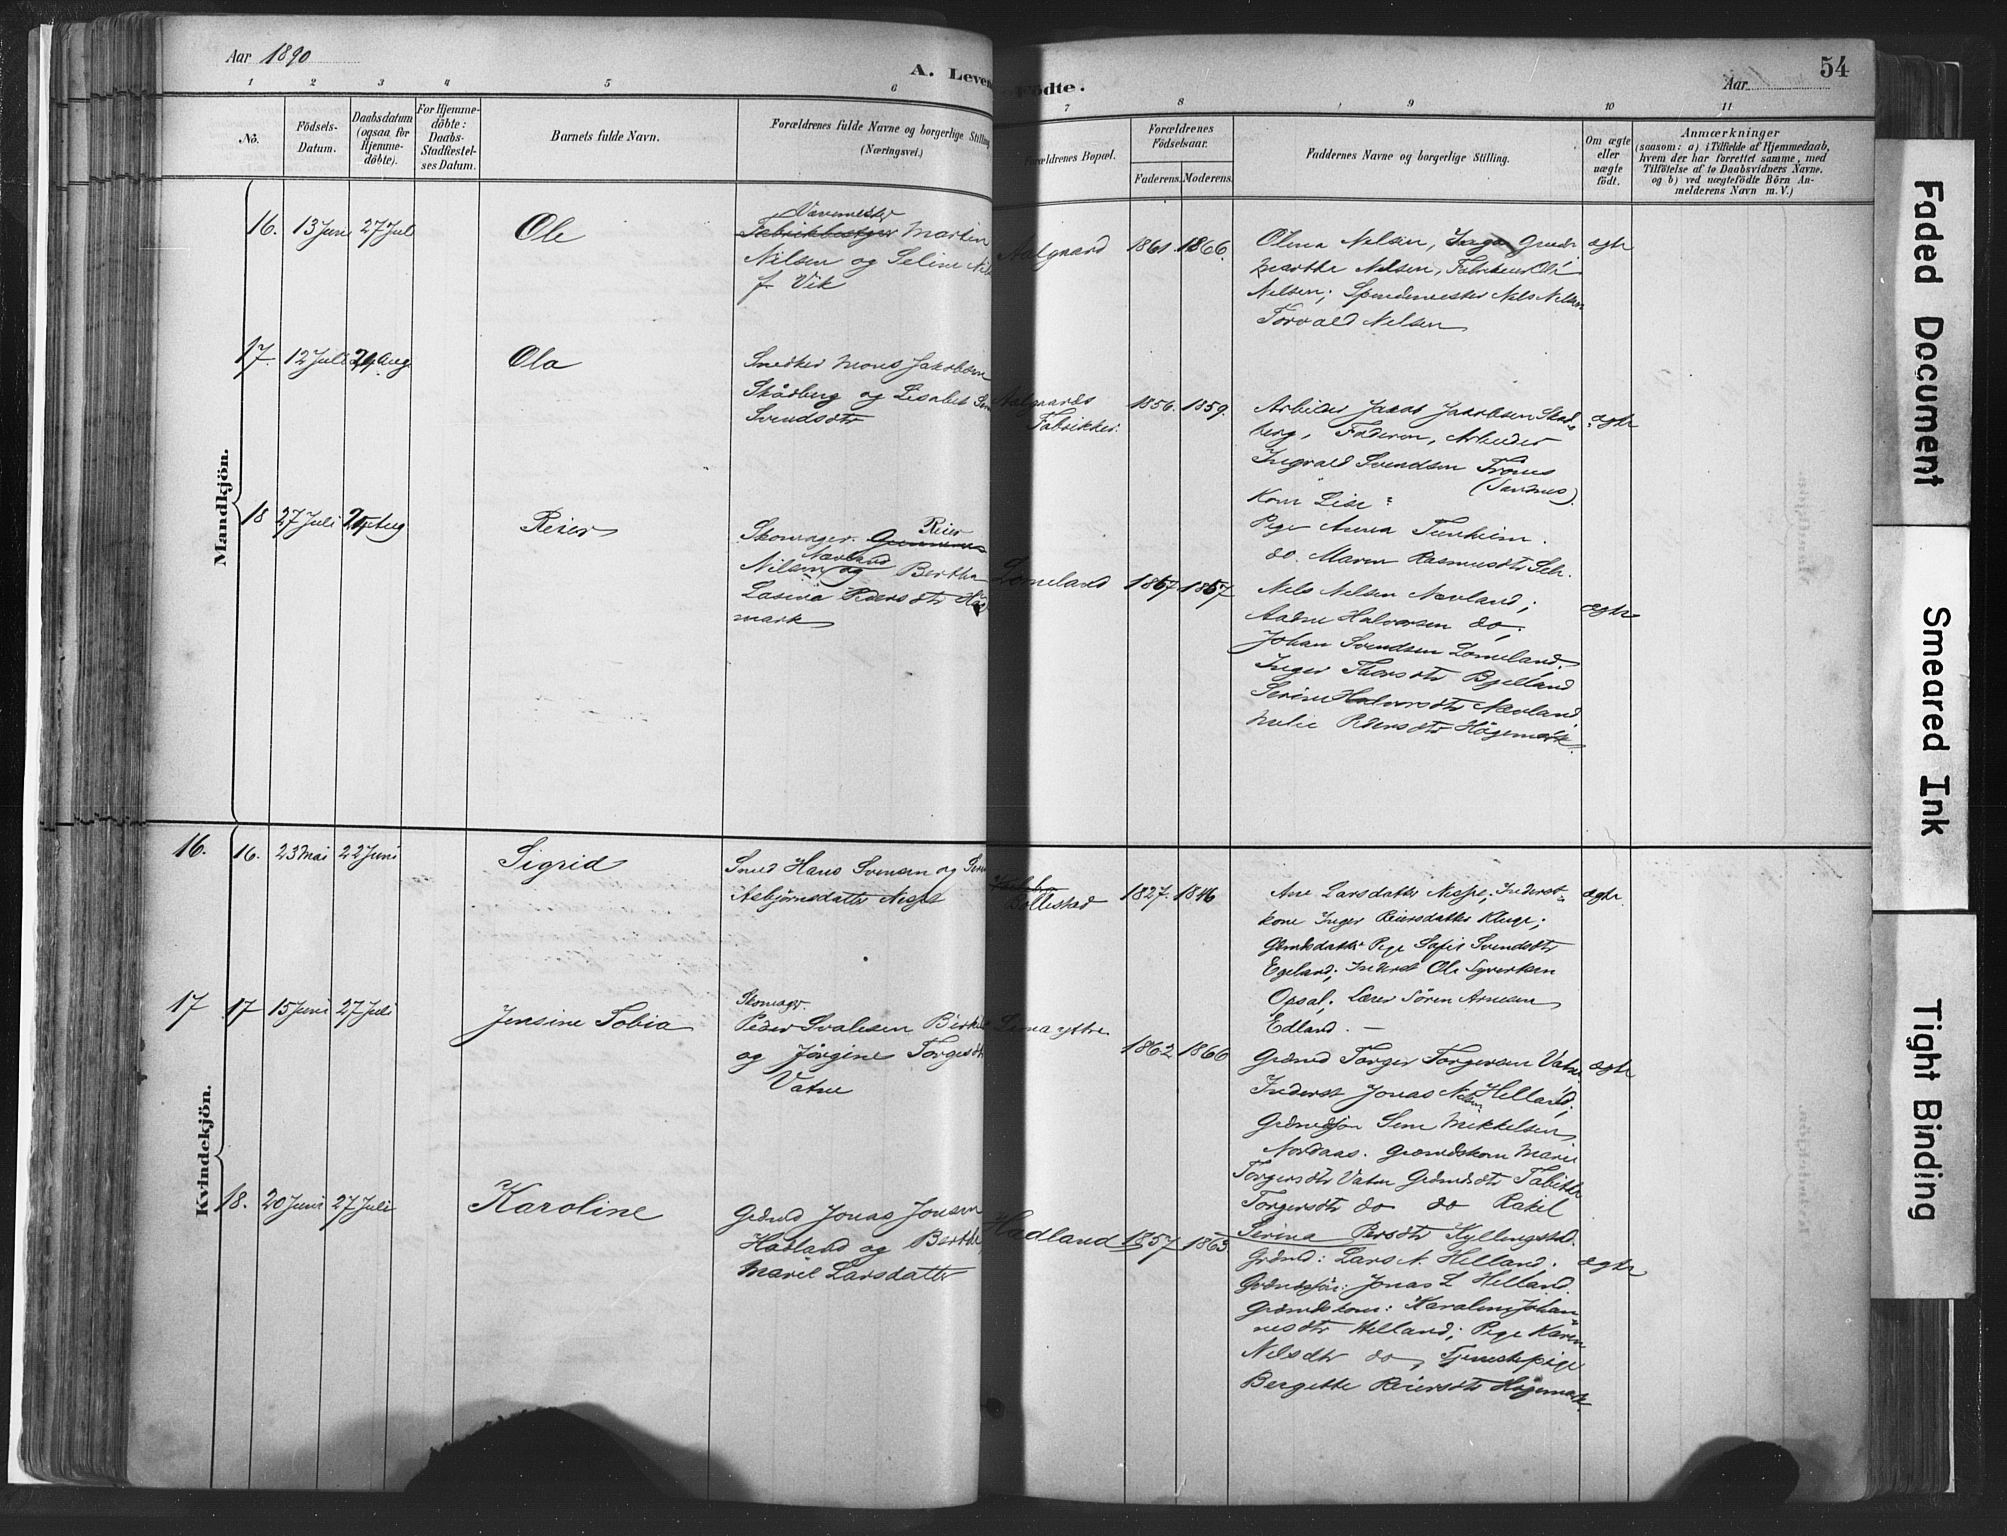 Aar 1890
A. Levende Födte.
Aar
54
1 2 3 4 5 6 7 8 9 10 11
No.
Födsels-
Datum.
Daabsdatum
(ogsaa for
Hjemme-
döbte).
For Hjemme-
döbte:
Daabs-
Stadfæstel-
ses Datum.
Barnets fulde Navn.
Forældrenes fulde Navne og borgerlige Stilling
(Næringsvei.)
Forældrenes Bopæl.
Forældrenes
Födselsaar.
Faderens. Moderens.
Faddernes Navne og borgerlige Stilling.
Om ægte
eller
uægte
födt.
Anmærkninger
(saasom: a) i Tilfælde af Hjemmedaab,
hvem der har forrettet samme, med
Tilföielse af to Daabsvidners Navne.
og b) ved uægtefödte Börn An-
melderens Navn m. V.)
Mandkjön.
16. 13 Juni 27 Jul
Ole
Vævemester
Fabrikbestyrer Martin
Nilsen og Seline
f. Vik
Aalgaard 1861 1866.
Olena Nelsen, Inga
Marthe Nelsen, Ole
Nelsen; Spindemester Nels Nelsen
Torvald Nelsen
ægte
17. 12 Juli 24 Aug
Ola
Snedker Mons Jakobsen
Skådberg og Lisabet
Svendsdtr
Aalgaards
Fabrikker.
1856. 1859.
Arbeider Jakob Jakobsen Skad-
berg, Faderen, Arbeider
Ingvald Svendsen
(Sandnes)
Kone Lise
Pige Anna Tunheim.
do. Maren Rasmusdtr
ægte
18 27 Juli 24 Aug
Reier
Skomager Reier
Nilsen Nævland og Bertha
Lasine Pedersdtr Høg
mark
Lomeland 1867 1857
Nels Nelsen Nævland;
Aadne Halvorsen do;
Johan Svendsen Lomeland;
Inger Thorsdtr Bjelland
Serine Halvorsdtr Nævland
Melie Pedersdtr Högemark.
ægte
Kvindekjön.
16. 16. 23 Mai 22 Juni
Sigrid
Smed Hans Svensen og
Asbjørnsdatter Nespe
Bollestad 1827. 1846
Ane Larsdatter Nespe; Inderst-
kone Inger Reiersdatter Kluge;
Gbrdsdatter Pige Sofie Svendsdtr
Egeland; Inderst Ole Syvertsen
Opsal; Lærer Sören Arnesen
Edland. —
ægte.
17 17 15 Juni 27 Juli
Jensine Tobia
Skomager
Peder Svalesen
og Jørgine Torgersdtr
Vatne
Sima ytre
1862 1866
Grdmd Torger Torgersen Vatne
Inderst Jonas Nelsen Helland;
Grdmdssøn Sem Mikkelsen
Nordaas. Grdmdskone Marie
Torgersdtr Vatne Grdmdsdtr Tabithe
Torgersdtr do do Rakel
Serina Persdtr Kyllingstad.
ægte
18. 20 Juni 27 Juli
Karoline
Grdmd Jonas Jonsen
Hadland og Berthe
Marie Larsdatter
Hadland 1857 1863
Grdmd: Lars N. Helland.
Grdmdssön: Jonas L Helland.
Grdmdskone: Karoline Johan-
nesdtr Helland; Pige Karen
Nelsdtr do, Tjenestepige
Bergitte Reiersdtr Högemark.
ægte
Faded Document
Smeared Ink
Tight Binding